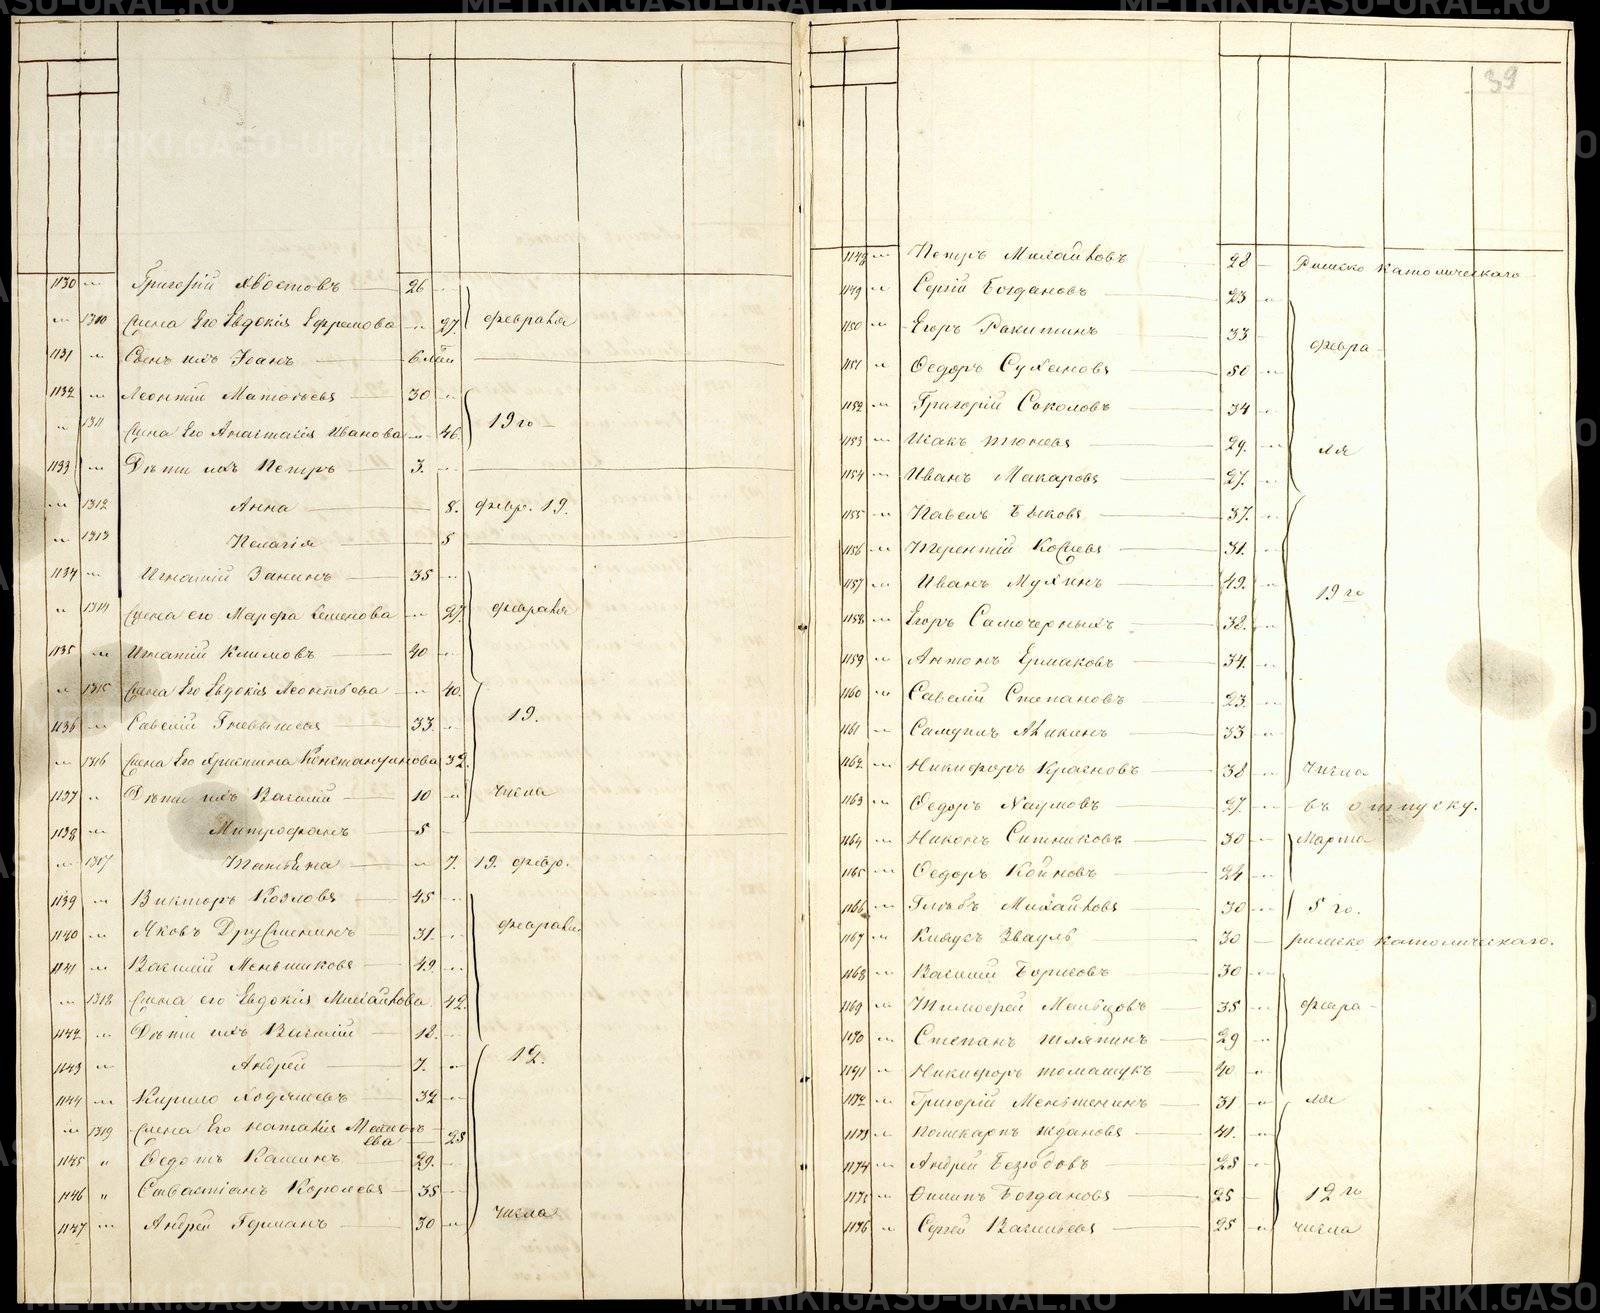 39
1130 " Григорій Хвостовъ 26 "
" 1310 Жена Его Евдокія Ефремова " 27. февраля
1131 " Сынъ ихъ Іванъ 6
1132 " Леонтій Матвѣевъ 30 "
" 1311 Жена Его Анастасія Иванова " 46. 19 го
1133 " Дѣти ихъ Петръ 3. "
" 1312 Анна 8. февр. 19.
" 1313 Пелагія 5
1134 " Игнатій Занинъ 35 "
" 1314 Жена его Марфа Семенова " 27. февраля
1135 " Игнатій Климовъ 40 "
" 1315 Жена Его Евдокія Леонтьева " 40.
1136 " Савелій 33. " 19.
" 1316 Жена Его Христина Константинова 32.
1137 " Дѣти ихъ Василій 10 " числа
1138 " Митрофанъ 5
" 1317 Татьяна " 7. 19. февр.
1139 " Викторъ Козловъ 45 "
1140 " Яковъ Дружининъ 31. " февраля
1141 " Василій Меньшиковъ 49. "
" 1318 Жена его Евдокія Михайлова 42.
1142 " Дѣти ихъ Василій 12. "
1143 " Андрей 7. " 12.
1144 " Кирило 32 "
" 1319 Жена Его Наталія Матвѣева 25
1145 " Федотъ Калинъ 29. "
1146 " Савастіанъ Королевъ 35 "
1147 " Андрей Германъ 30 " числа
1148 " Петръ Михайловъ 28 Римско католическаго
1149 " Сергій Богдановъ 23 "
1150 " Егоръ Ракитинъ 33 февра
1151 " Федоръ Сухановъ 50 "
1152 " Григорій Соколовъ 34 "
1153 " Исакъ 29. " ля
1154 " Иванъ Макаровъ 27. "
1155 " Павелъ Быковъ 37. "
1156 " Терентій 31. "
1157 " Иванъ Мухинъ 49. " 19 го
1158 " Егоръ Самочерныхъ 38. "
1159 " Антонъ Ермаковъ 34. "
1160 " Савелій Степановъ 23. "
1161 " Самуилъ Аникинъ 33 "
1162 " Никифоръ Красновъ 38 " числа
1163 " Федоръ Наумовъ 27. " въ отпуску.
1164 " Никонъ Ситниковъ 30 " Марта
1165 " Федоръ Койновъ 24 "
1166 " Глѣбъ Михайловъ 30 " 5 го.
1167 " 30 римско католическаго.
1168 " Василій Борисовъ 30 "
1169 " Тимофей 35 " февра
1170 " Степанъ Шляпинъ 29 "
1171 " Никифоръ Томашукъ 40 "
1172 " Григорій Меньшенинъ 31 " ля
1173 " Поликарпъ Ждановъ 41. "
1174 " Андрей Безюбовъ 25 "
1175 " Филипъ Богдановъ 25 " 12 го
1176 " Сергей Васильевъ 25 " числа
METRIKI.GASO-URAL.RU